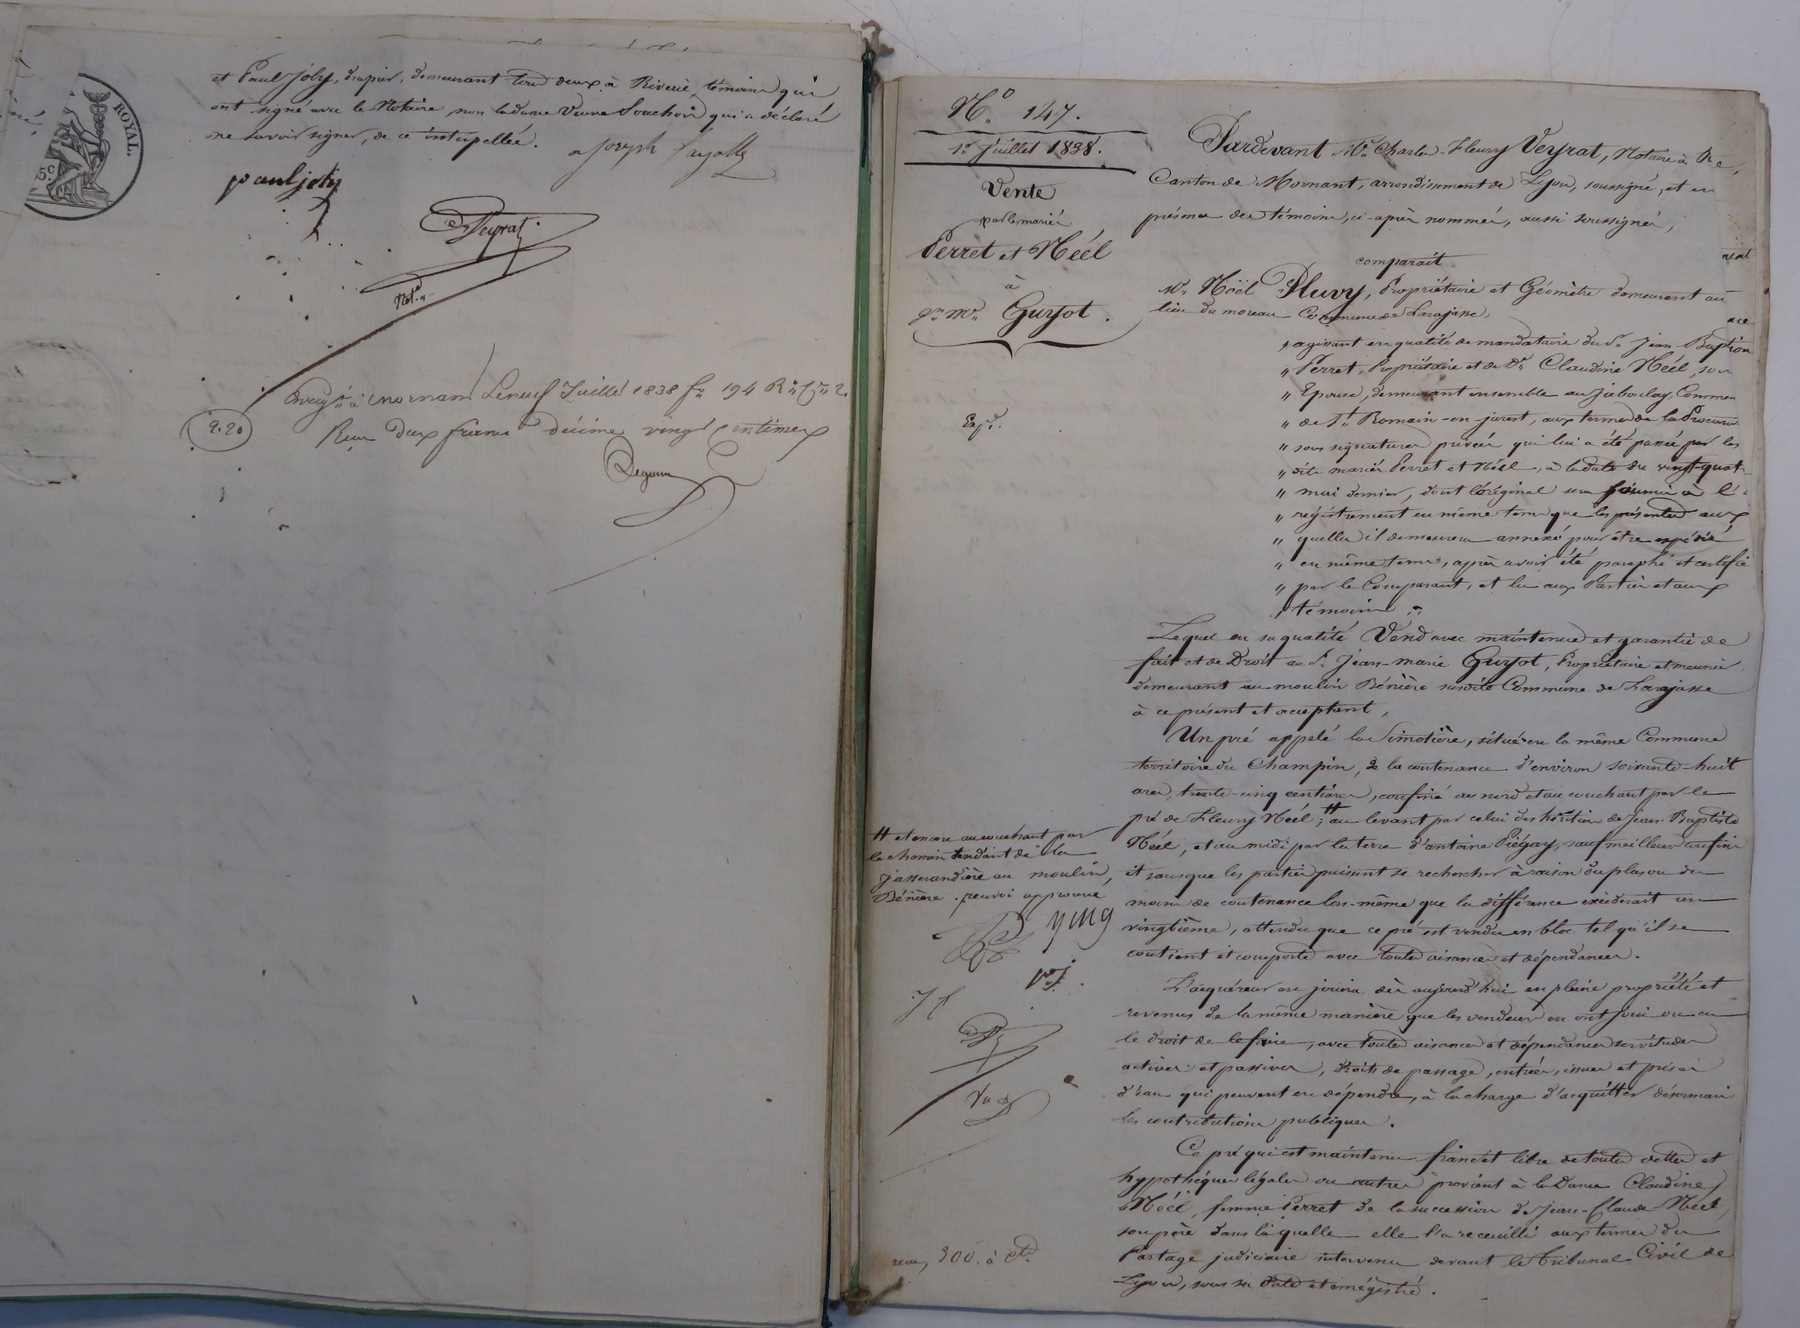 et Paul Joly, drapier, demeurant tous deux à Riverie, témoins qui
ont signé avec le Notaire, non la dame Veuve Souchon qui a déclaré
ne savoir signer, de ce interpellée.
ROYAL.
5c
joseph
paul joly
Veyrat
Not.re
Enreg.é à Mornant Le neuf Juillet 1838 f.° 194 R.° C.es 2.
2.20
Reçu deux francs décime vingt centimes
N.° 147.
1.er Juillet 1838.
Vente
par les mariés
Perret et Néél
à
Guyot.
Exp.é
Pardevant M.e Charles Fleury Veyrat, Notaire à
Canton de Mornant, arrondissement de Lyon, soussigné, et en
présence des témoins, ci-après nommés, aussi soussignés,
comparait
M.r Noël Pluvy, Propriétaire et Géomètre demeurant au
lieu du moreau Commune de Larajasse,
"agissant en qualité de mandataire du S.r Jean-Baptiste
" Perret, Propriétaire et de D.e Claudine Néél, son
" Epouse, demeurant ensemble au Jaboulay, Commune
" de S.t Romain-en-jarest, aux termes de la
" sous signatures privées qui lui a été passée par les
" dits mariés Perret et Néél, à la date du vingt-quatre
" mai dernier, dont l'original sera fournie à l'
" régistrement en même tems que les présentes aux
" quelles il demeurera annexé pour être expédié
" en même tems, après avoir été paraphé et certifié
" par le Comparant, et lu aux Parties et aux
" témoins;
Lequel en sa qualité Vend avec maintenue et garantie de
fait et de Droit au S.r Jean-marie Guyot, Propriétaire et meunier
demeurant au moulin Bénière susdite Commune de Larajasse
à ce présent et acceptant,
Un pré appelé la Simotière, situé en la même Commune
territoire du Champin, de la contenance d'environ soixante-huit
ares, trente-cinq centiares, confiné au nord et au couchant par le
pré de Fleury Néél; # au levant par celui des héritiers de Jean-Baptiste
Néél, et au midi par la terre d'antoine Piégay, sauf meilleurs confins
et sans que les parties puissent se rechercher à raison du plus ou du
moins de contenance lors-même que la différence excéderait un
vingtième, attendu que ce pré est vendu en bloc tel qu'il se
contient et comporte avec toutes aisances et dépendances.
# et encore au couchant par
le chemin tendant de la
Jasserandière au moulin,
Bénière. renvoi approuvé
L'acquéreur en jouira dès aujourd'hui en pleine propriété et
revenus de la même manière que les vendeurs en ont joui ou eu
le droit de le faire, avec toutes aisances et dépendances servitudes
actives et passives, droits de passage, entrées, issues et prises
d'eau qui peuvent en dépendre, à la charge d'acquitter désormais
les contributions publiques.
Ce pré qui est maintenu franc et libre de toutes dettes et
hypothèques légales ou autres provient à la Dame Claudine
Néél, femme Perret de la succession de Jean-Claude Néél,
son père dans laquelle elle l'a recueilli aux termes du
Partage judiciaire intervenu devant le tribunal Civil de
Lyon, sous sa date et enrégistré.